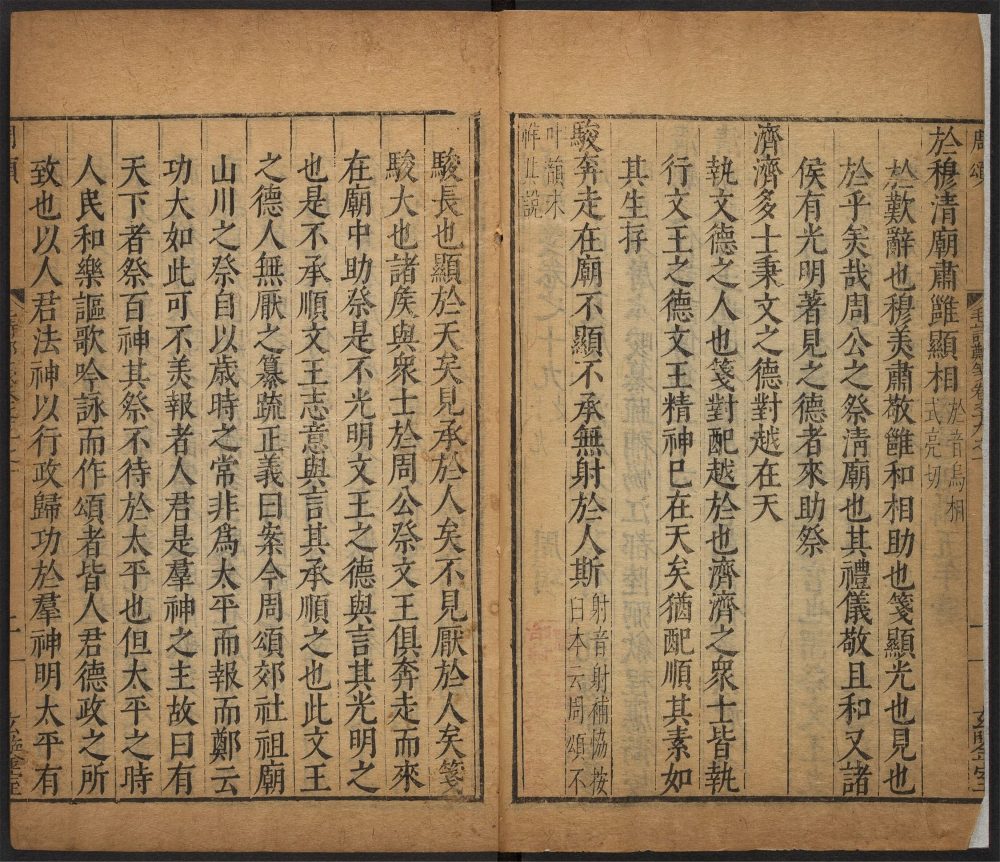 於穆清廟肅雝顯相於音烏相
式亮切
於歎辭也穆美肅敬雝和相助也箋顯光也見也
於乎美哉周公之祭清廟也其禮儀敬且和又諸
侯有光明著見之德者來助祭
濟濟多士秉文之德對越在天
執文德之人也箋對配越於也濟濟之衆士皆執
行文王之德文王精神已在天矣猶配順其素如
其生存
駿奔走在廟不顯不承無射於人斯射音射補協按
日本云周頌不
叶韻未
詳其說
駿長也顯於天矣見承於人矣不見厭於人矣箋
駿大也諸矦與衆士於周公祭文王俱奔走而來
在廟中助祭是不光明文王之德與言其光明之
也是不承順文王志意與言其承順之也此文王
之德人無厭之纂疏正義曰案今周頌郊社祖廟
山川之祭自以歳時之常非爲太平而報而鄭云
功大如此可不美報者人君是羣神之主故曰有
天下者祭百神其祭不待於太平也但太平之時
人民和樂謳歌吟詠而作頌者皆人君德政之所
致也以人君法神以行政歸功於羣神明太平有
周頌